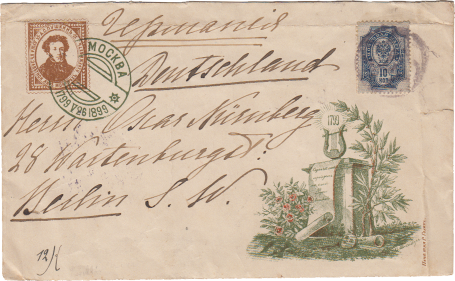 Германія
МОСКВА
1799 26 V 1899
10
Deutschland
Herrn Oscar Nürnberg
1799
28 Wartenburgst:
Berlin S. W.
12/